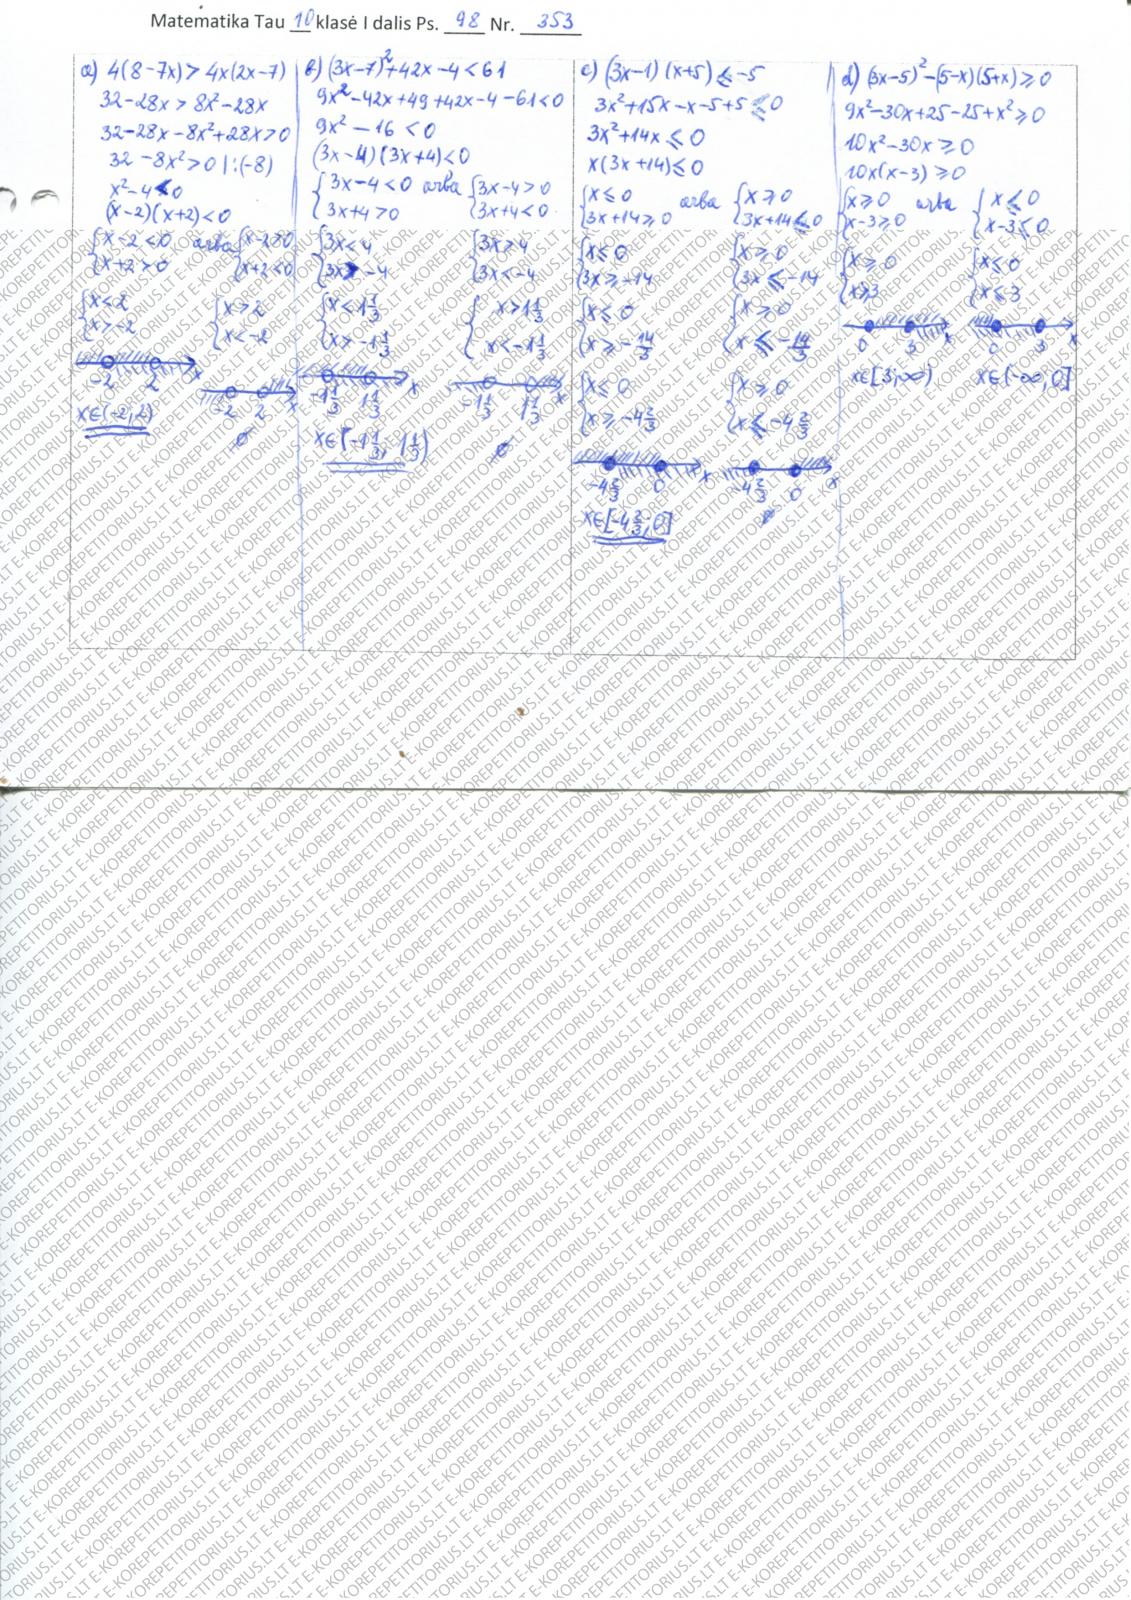 Matematika Tau 10 klasė I dalis Ps. 98 Nr. 353
a) 4(8-7x) > 4x(2x-7)
32-28x > 8x²-28x
32-28x-8x²+28x>0
32-8x²>0 |:(-8)
x²-4<0
(x-2)(x+2)<0
{x-2<0 arba {x-2>0
{x+2>0 {x+2<0
{x<2 {x>2
{x>-2 {x<-2
-2 2 x
-2 2 x
x∈(-2;2) ∅
b) (3x-7)²+42x-4<61
9x²-42x+49+42x-4-61<0
9x²-16<0
(3x-4)(3x+4)<0
{3x-4<0 arba {3x-4>0
{3x+4>0 {3x+4<0
{3x<4 {3x>4
{3x>-4 {3x<-4
{x<1 1/3 {x>1 1/3
{x>-1 1/3 {x<-1 1/3
-1 1/3 1 1/3 x -1 1/3 1 1/3 x
x∈(-1 1/3; 1 1/3) ∅
c) (3x-1)(x+5)≤-5
3x²+15x-x-5+5≤0
3x²+14x≤0
x(3x+14)≤0
{x≤0 arba {x≥0
{3x+14≥0 {3x+14≤0
{x≤0 {x≥0
{3x≥-14 {3x≤-14
{x≤0 {x≥0
{x≥-14/3 {x≤-14/3
{x≤0 {x≥0
{x≥-4 2/3 {x≤-4 2/3
-4 2/3 0 x -4 2/3 0 x
x∈[-4 2/3; 0] ∅
d) (3x-5)²-(5-x)(5+x)≥0
9x²-30x+25-25+x²≥0
10x²-30x≥0
10x(x-3)≥0
{x≥0 arba {x≤0
{x-3≥0 {x-3≤0
{x≥0 {x≤0
{x≥3 {x≤3
0 3 x 0 3 x
x∈[3;∞) x∈(-∞;0]
E-KOREPETITORIUS.LT